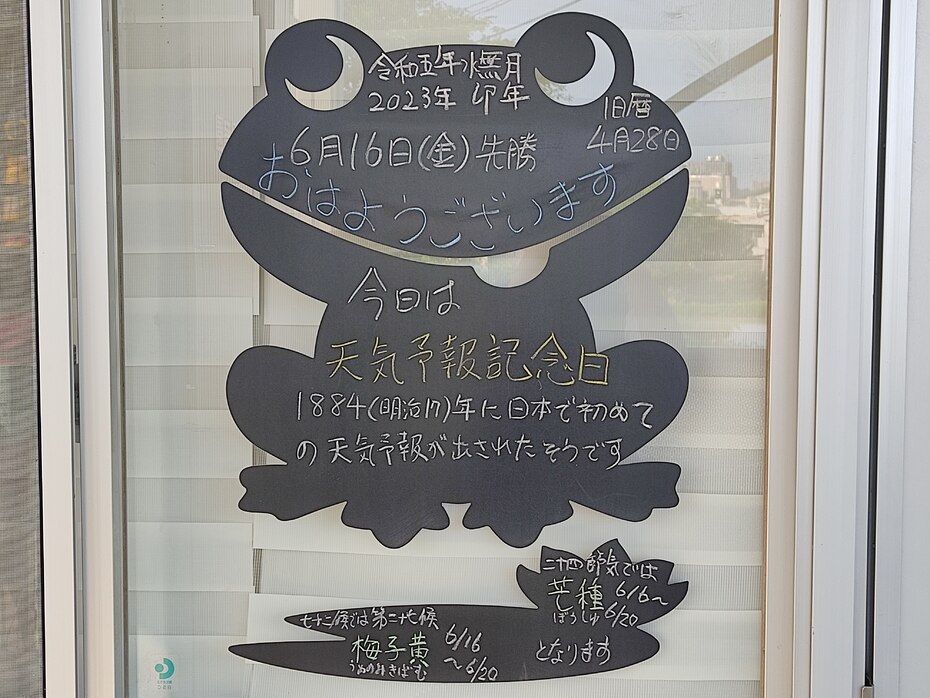 令和五年水無月
2023年 卯年
旧暦
4月28日
6月16日(金)先勝
おはようございます
今日は
天気予報記念日
1884(明治17)年に日本で初めて
の天気予報が出されたそうです
二十四節気では
芒種 6/6〜
ぼうしゅ 6/20
七十二候では第二十七候
梅子黄 6/16
うめのみきばむ 〜6/20
となります